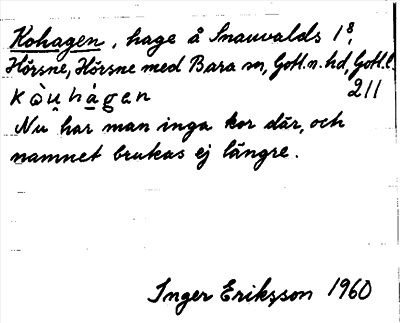 Kohagen, hage å Snauvalds 1⁸,
Hörsne, Hörsne med Bara sn, Gotl. n. hd, Gotl. l.
kòu̯hàgen 211
Nu har man inga kor där, och
namnet brukas ej längre.
Inger Eriksson 1960